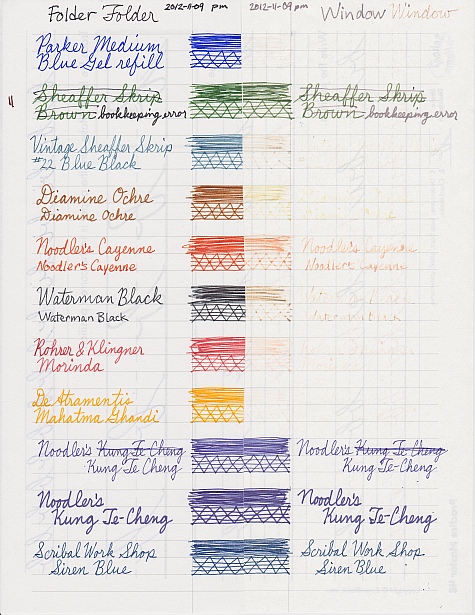 Folder Folder 2012-11-09 pm 2012-11-09 pm Window Window
Parker Medium
Blue Gel refill
Sheaffer Skrip Sheaffer Skrip
Brown bookkeeping error Brown bookkeeping error
Vintage Sheaffer Skrip
#22 Blue Black
Diamine Ochre
Diamine Ochre
Noodler's Cayenne Noodler's Cayenne
Noodler's Cayenne Noodler's Cayenne
Waterman Black
Waterman Black
Rohrer & Klingner
Morinda
De Atramentis
Mahatma Ghandi
Noodler's Kung Te Cheng Noodler's Kung Te Cheng
Kung Te Cheng Kung Te Cheng
Noodler's Noodler's
Kung Te-Cheng Kung Te-Cheng
Scribal Work Shop Scribal Work Shop
Siren Blue Siren Blue